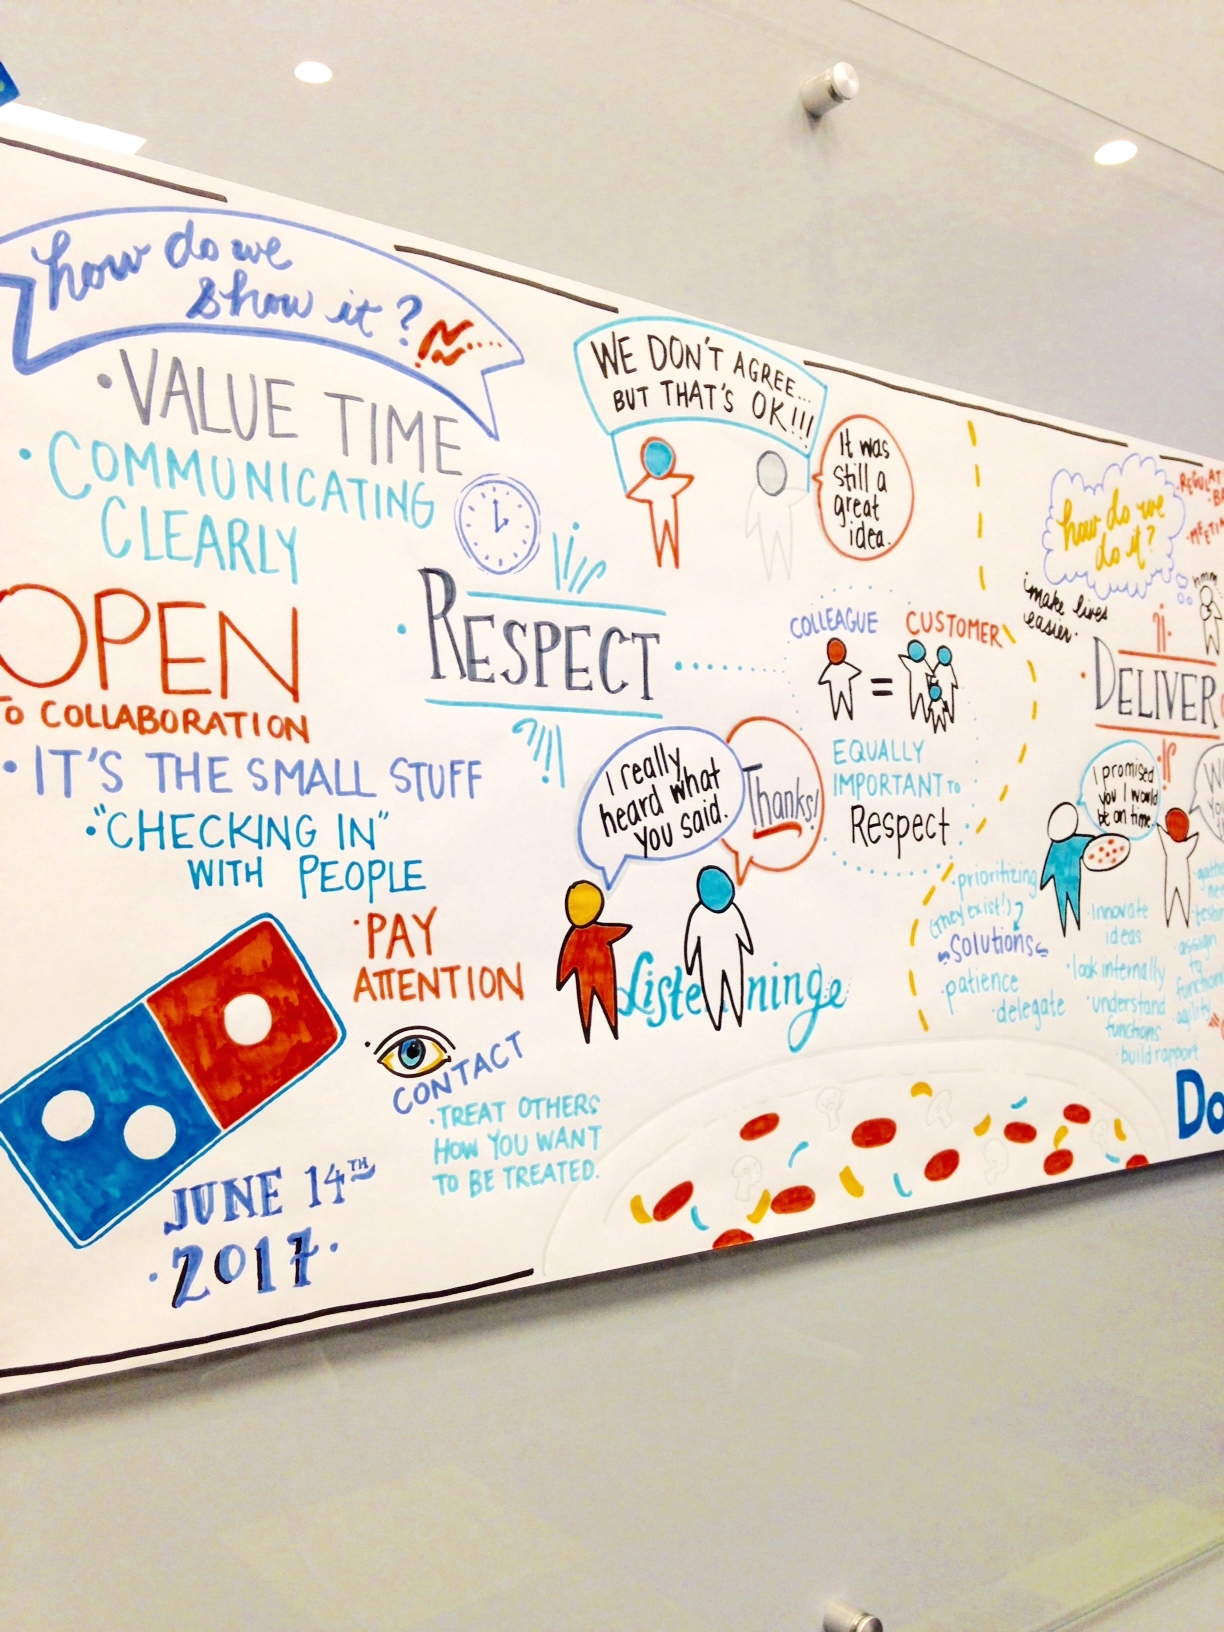 how do we
show it?
• VALUE TIME
• COMMUNICATING
CLEARLY
OPEN
TO COLLABORATION
• IT'S THE SMALL STUFF
• "CHECKING IN"
WITH PEOPLE
• PAY
ATTENTION
CONTACT
• TREAT OTHERS
HOW YOU WANT
TO BE TREATED.
JUNE 14TH
• 2017 •
WE DON'T AGREE...
BUT THAT'S OK!!!
It was
still a
great
idea.
• RESPECT
COLLEAGUE
CUSTOMER
=
EQUALLY
IMPORTANT TO
Respect
I really
heard what
you said.
Thanks!
Listenninge
how do we
do it?
make lives
easier.
hmm
• DELIVER
I promised
you I would
be on time.
• prioritizing
(they exist!)
Solutions
• patience
• delegate
• Innovate
ideas
• look internally
• understand
functions
• build rapport
assign
to
agility
Do